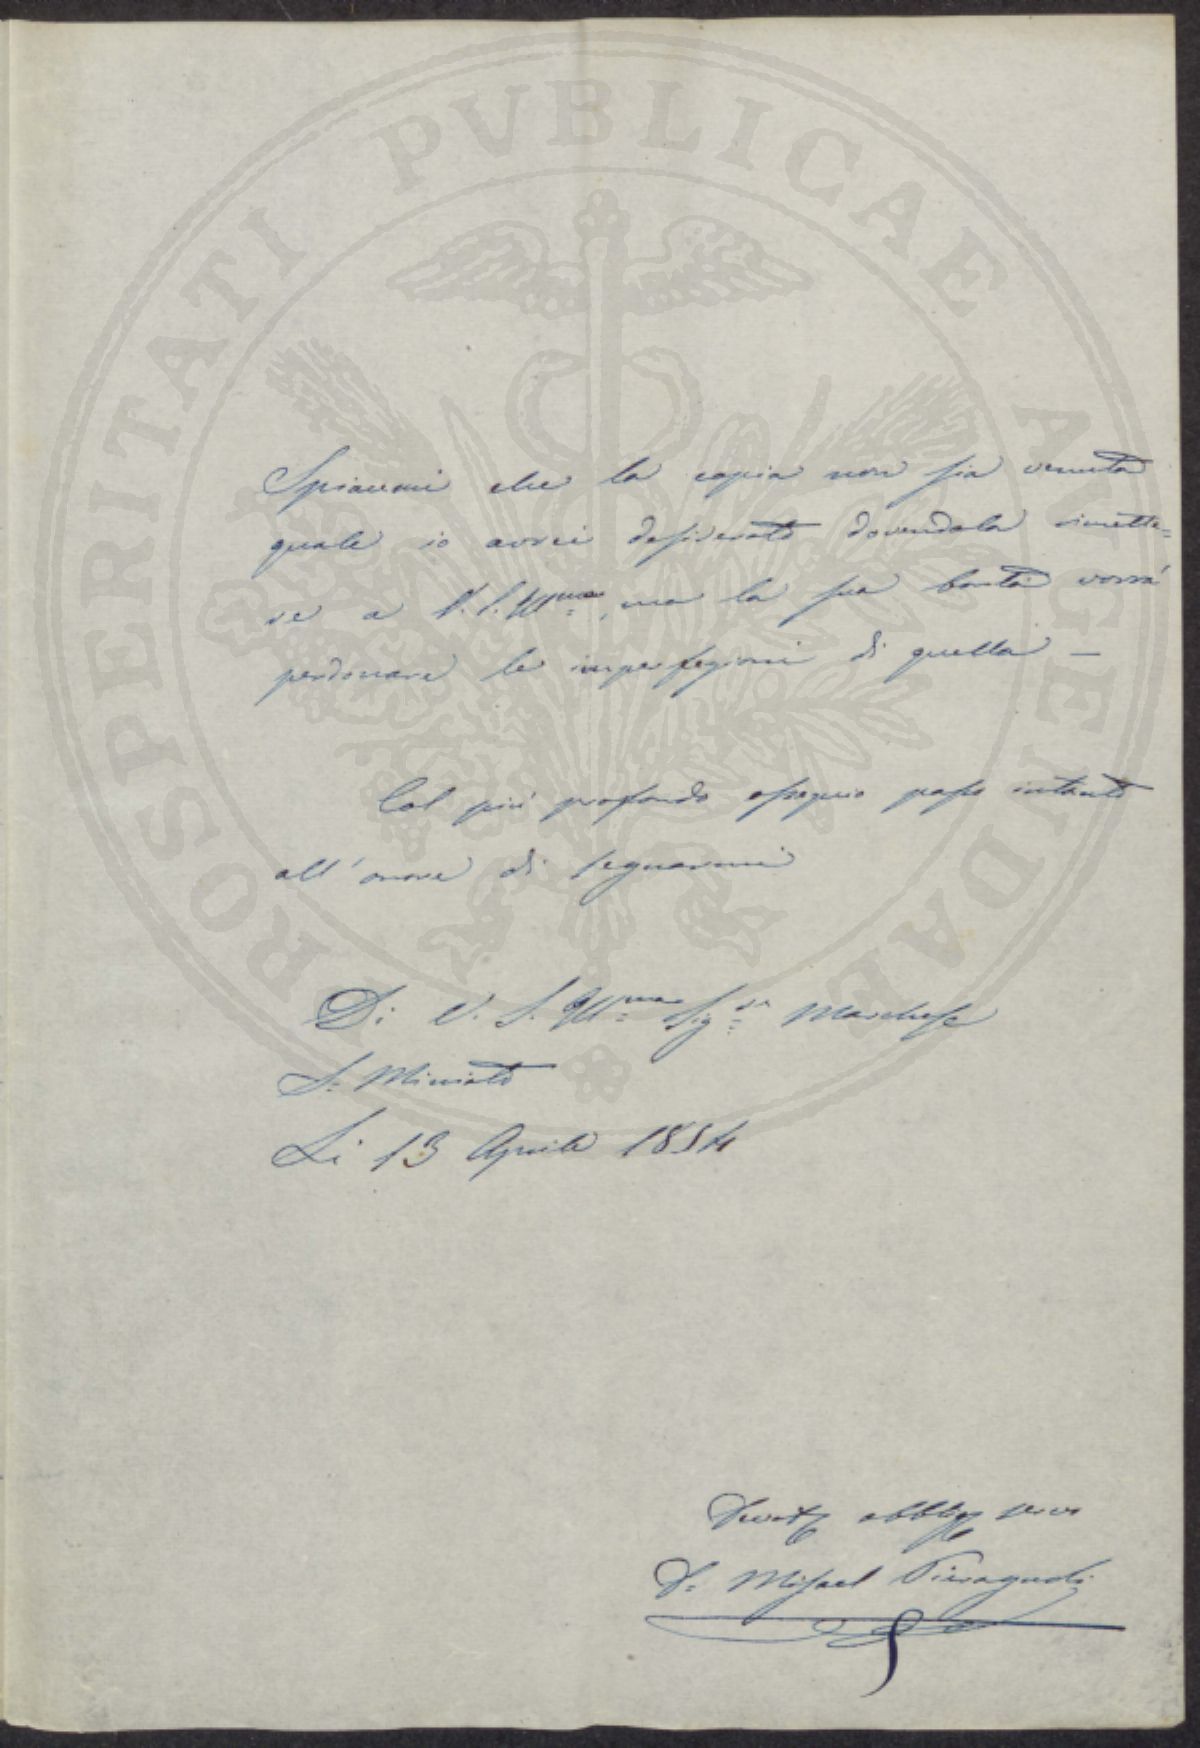 PROSPERITATI PUBLICAE AUGENDAE
Spiacemi che la copia non sia venuta
quale io avrei desiderato dovendola rimette=
re a V. S. Illma, ma la sua bontà vorrà
perdonare le imperfezioni di quella —
Col più profondo ossequio passo intanto
all'onore di segnarmi
Di V. S. Illma Sigr Marchese
S. Miniato
Li 13 Aprile 1854
servo
Dr Misael Pieragnoli